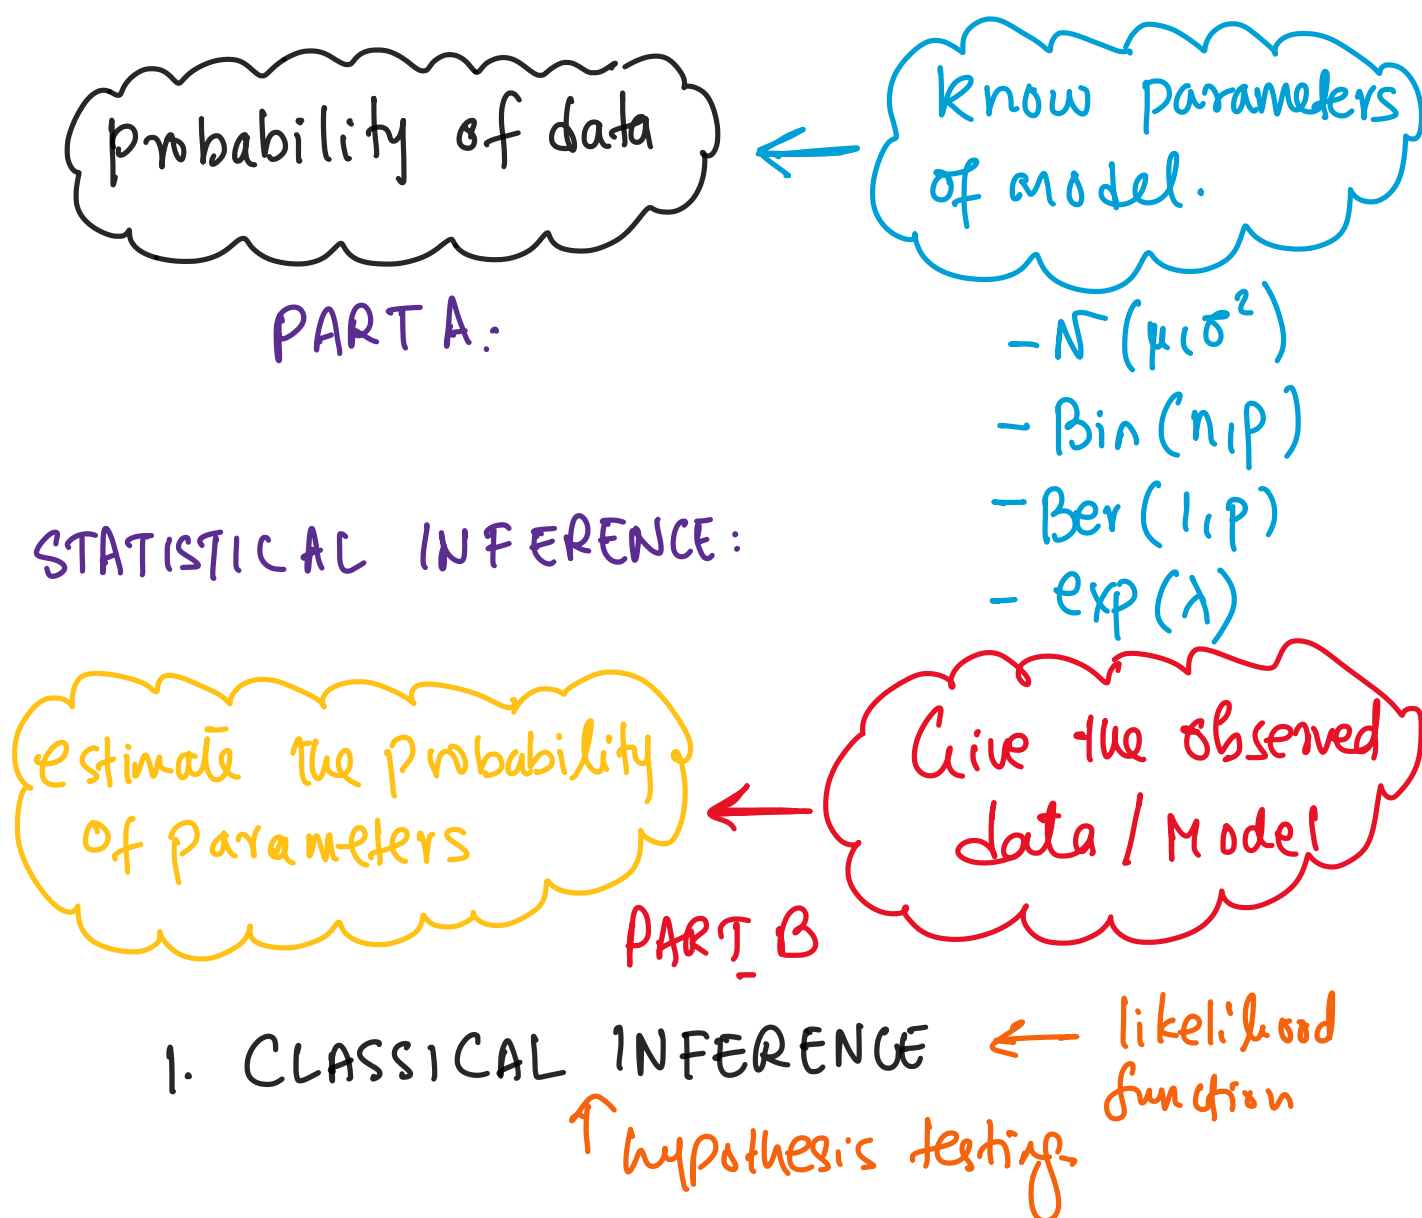 probability of data
know parameters
of model.
PART A:
- N(μ,σ²)
- Bin(n,p)
- Ber(1,p)
- exp(λ)
STATISTICAL INFERENCE:
estimate the probability
of parameters
Give the observed
data / Model
PART B
1. CLASSICAL INFERENCE
likelihood
function
hypothesis testing